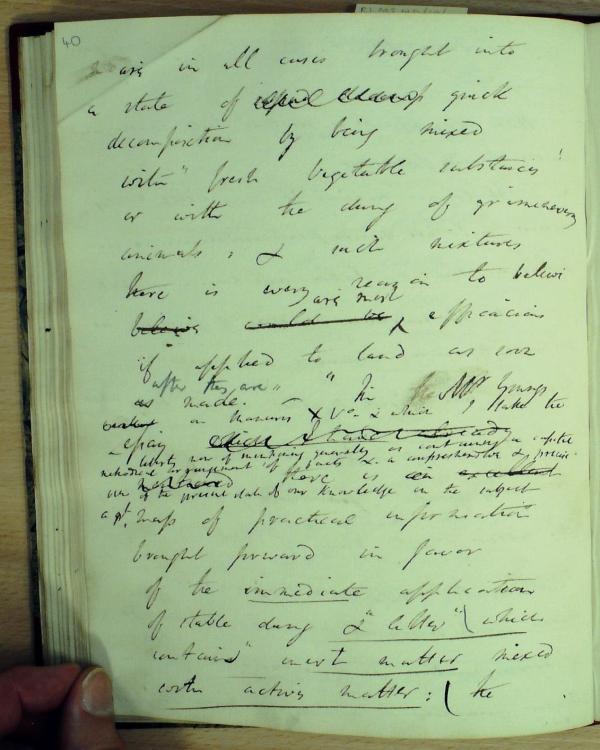 40
are in all cases brought into
a state of quick
decomposition by being mixed
with fresh Vegetable substances
or with the dung of graminivorous
animals; & such mixtures
there is every reason to believe
are most
believe would be ^ efficacious
if applied to land as soon
after they are " " In the Mr Youngs
as made.
on Manures X Vol. & which I take the
efficacy already
liberty now of mentioning generally as containing a
methodical arrangement of facts & a comprehensive &
there is an excellent
view of the present state of our knowledge on the subject
a gt. mass of practical information
brought forward in favor
of the immediate application
of stable dung & "litter" (which
contains" inert matter mixed
with active matter: ( the